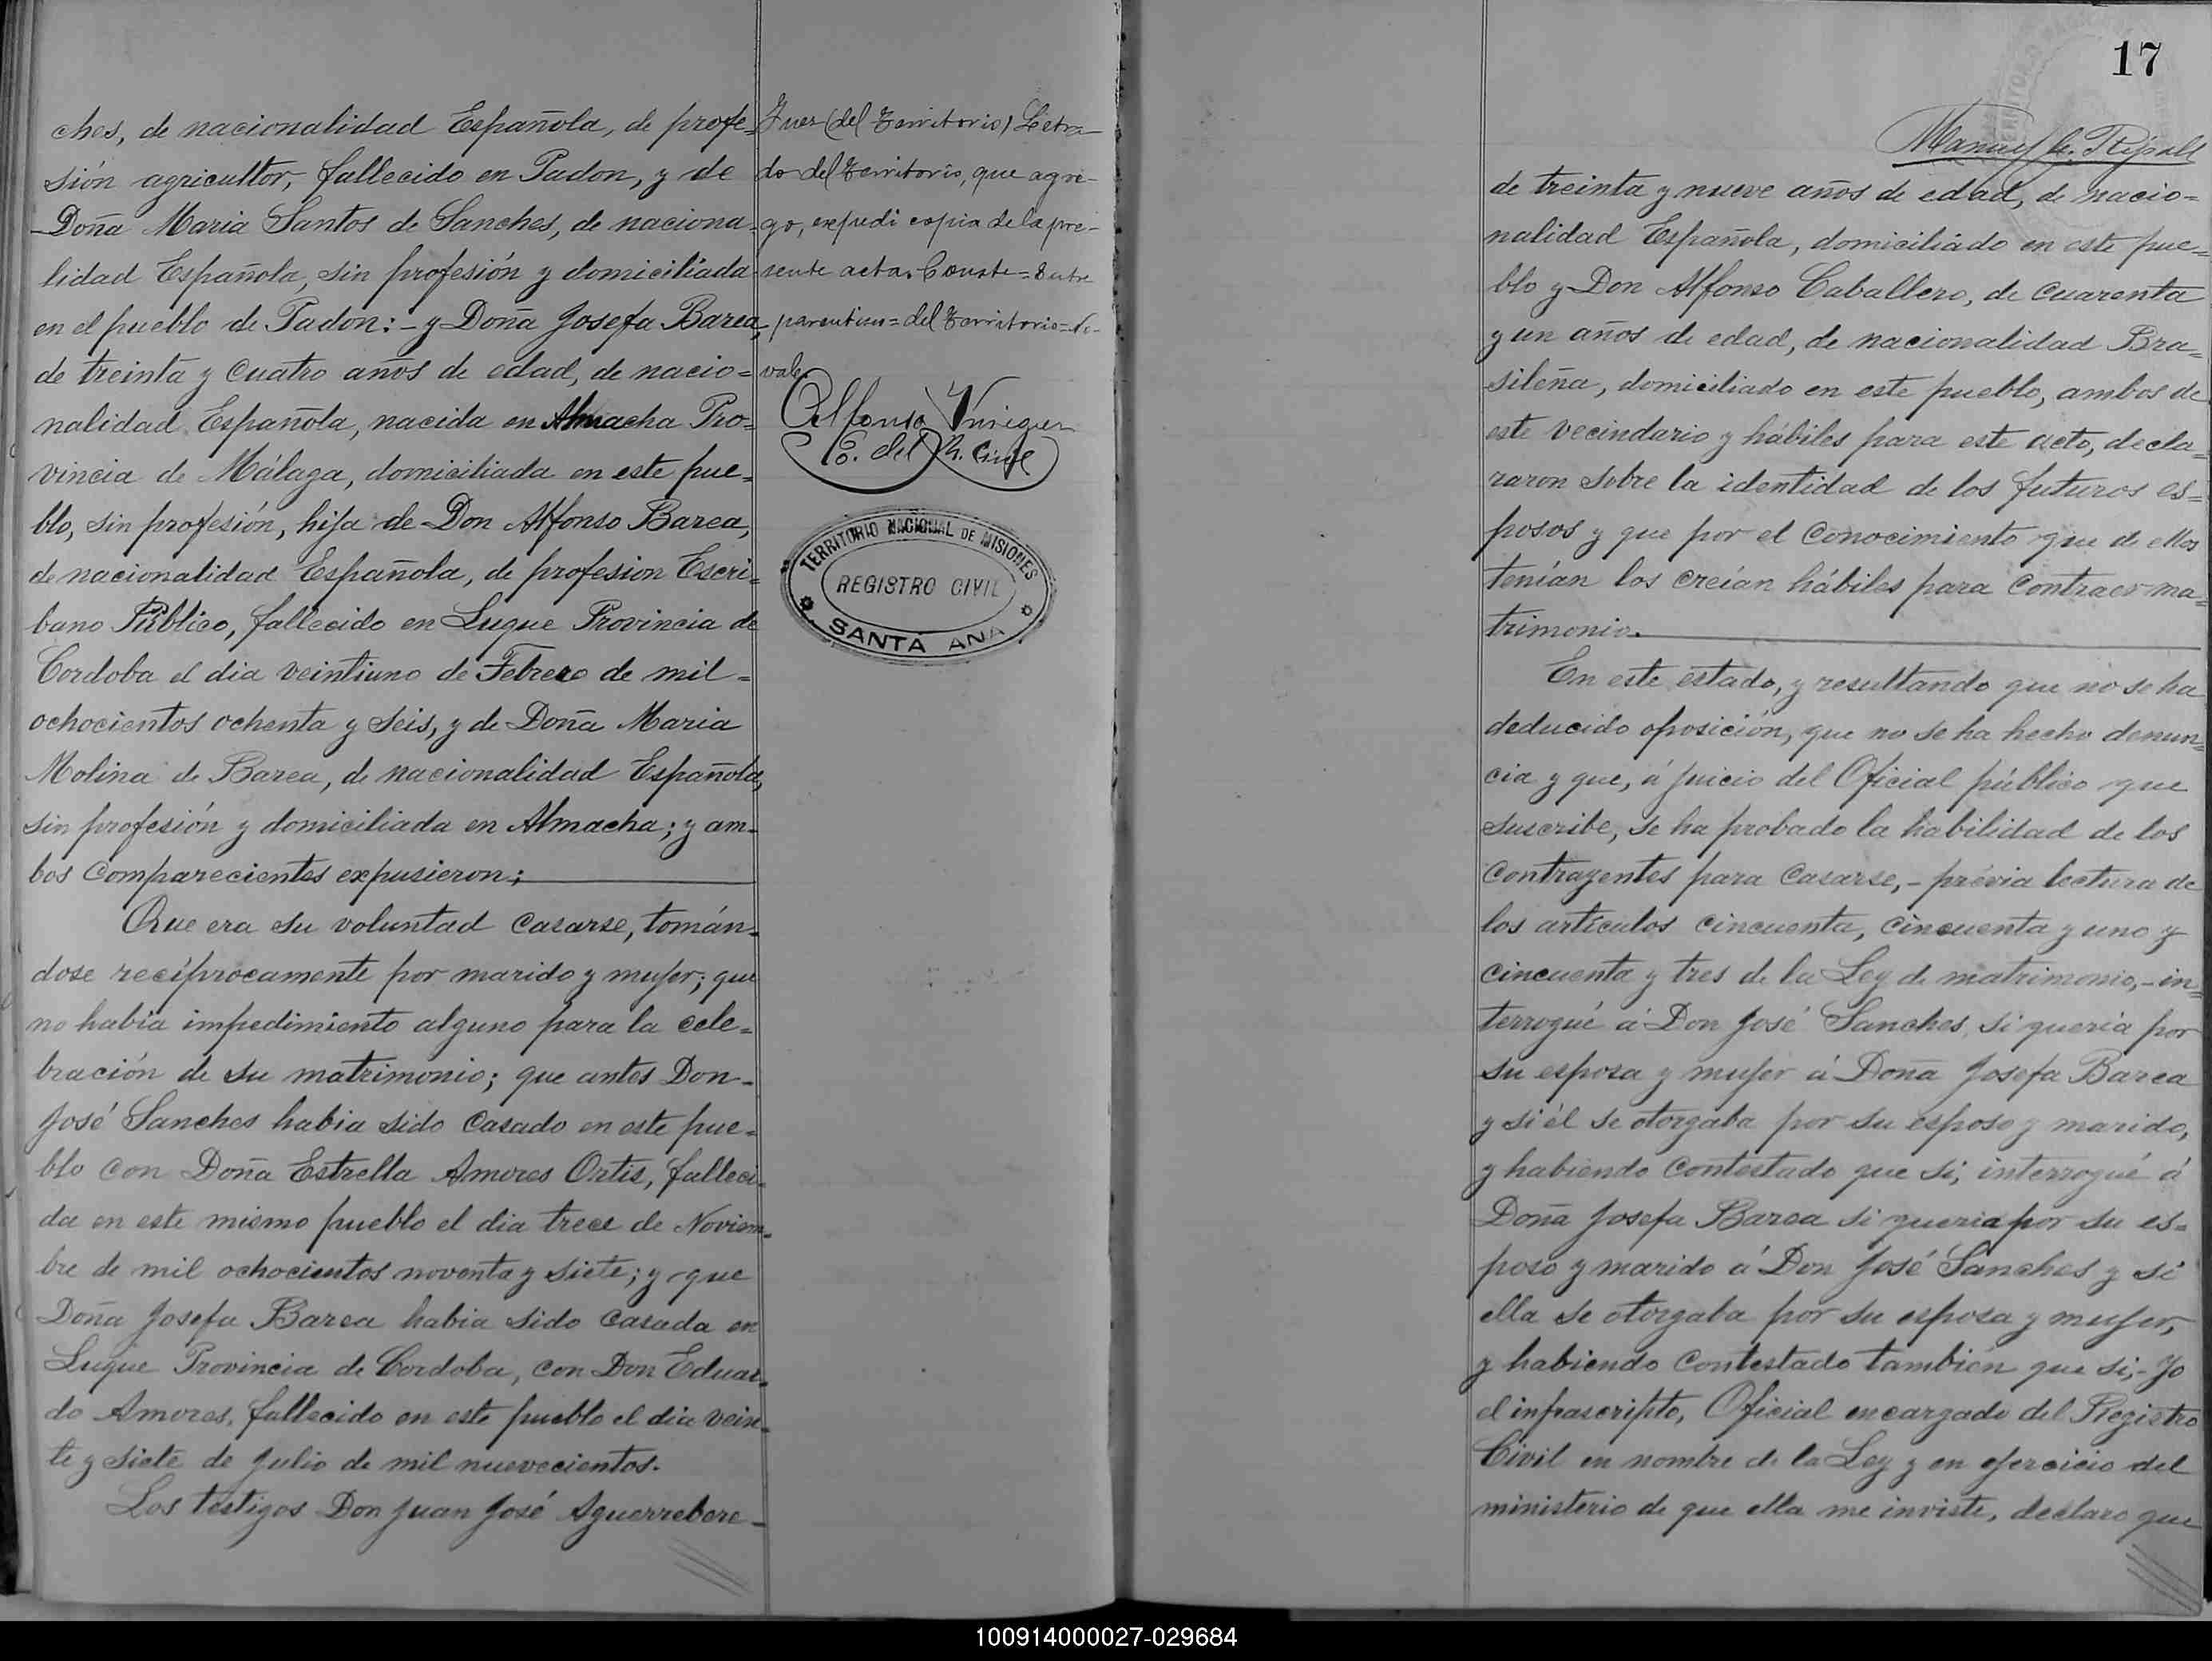 ches, de nacionalidad Española, de profe=
sión agricultor, fallecido en Padon, y de
Doña Maria Santos de Sanches, de naciona=
lidad Española, sin profesión y domiciliada
en el pueblo de Padon:- y Doña Josefa Barea,
de treinta y cuatro años de edad, de nacio=
nalidad Española, nacida en Almacha Pro=
vincia de Málaga, domiciliada en este pue=
blo, sin profesión, hija de Don Alfonso Barea,
de nacionalidad Española, de profesion Escri=
bano Público, fallecido en Luque Provincia de
Cordoba el dia veintiuno de Febrero de mil=
ochocientos ochenta y seis, y de Doña Maria
Molina de Barea, de nacionalidad Española,
sin profesión y domiciliada en Almacha; y am=
bos comparecientes expusieron;
Que era su voluntad casarse, tomán=
dose recíprocamente por marido y mujer; que
no habia impedimiento alguno para la cele=
bración de su matrimonio; que antes Don-
José Sanches habia sido casado en este pue=
blo con Doña Estrella Amores Ortis, falleci=
da en este mismo pueblo el dia trece de Noviem=
bre de mil ochocientos noventa y siete; y que
Doña Josefa Barea habia sido casada en
Luque Provincia de Cordoba, con Don Eduar=
do Amores, fallecido en este pueblo el dia vein=
te y siete de Julio de mil nuevecientos.
Los testigos Don Juan José Aguerrebere-
Juez (del Territorio) Letra-
do del Territorio, que agre-
go, expedi copia de la pre-
sente acta. Conste = Entre
parentisis = del Territorio = No
vale.
Alfonso
E. del R. Civil
TERRITORIO NACIONAL DE MISIONES
REGISTRO CIVIL
SANTA ANA
17
Manuel
de treinta y nueve años de edad, de nacio=
nalidad Española, domiciliado en este pue=
blo y Don Alfonso Caballero, de cuarenta
y un años de edad, de nacionalidad Bra=
sileña, domiciliado en este pueblo, ambos de
este vecindario y hábiles para este acto, decla=
raron sobre la identidad de los futuros es=
posos y que por el conocimiento que de ellos
tenían los creían hábiles para contraer ma=
trimonio.
En este estado, y resultando que no se ha
deducido oposición, que no se ha hecho denun=
cia y que, á juicio del Oficial público que
suscribe, se ha probado la habilidad de los
contrayentes para casarse,- prévia lectura de
los artículos cincuenta, cincuenta y uno y
cincuenta y tres de la Ley de matrimonio,- in=
terrogué á Don José Sanches, si queria por
su esposa y mujer á Doña Josefa Barea
y si él se otorgaba por su esposo y marido,
y habiendo contestado que si, interrogué á
Doña Josefa Barea si queria por su es=
poso y marido á Don José Sanches y si
ella se otorgaba por su esposa y mujer,
y habiendo contestado también que si,- Yo
el infrascripto, Oficial encargado del Registro
Civil en nombre de la Ley y en ejercicio del
ministerio de que ella me inviste, declaro que
100914000027-029684